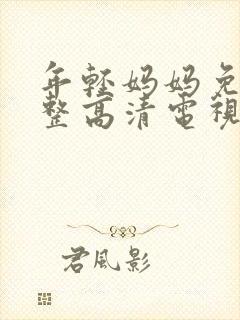 年輕妈妈免
整高清電視
君風影